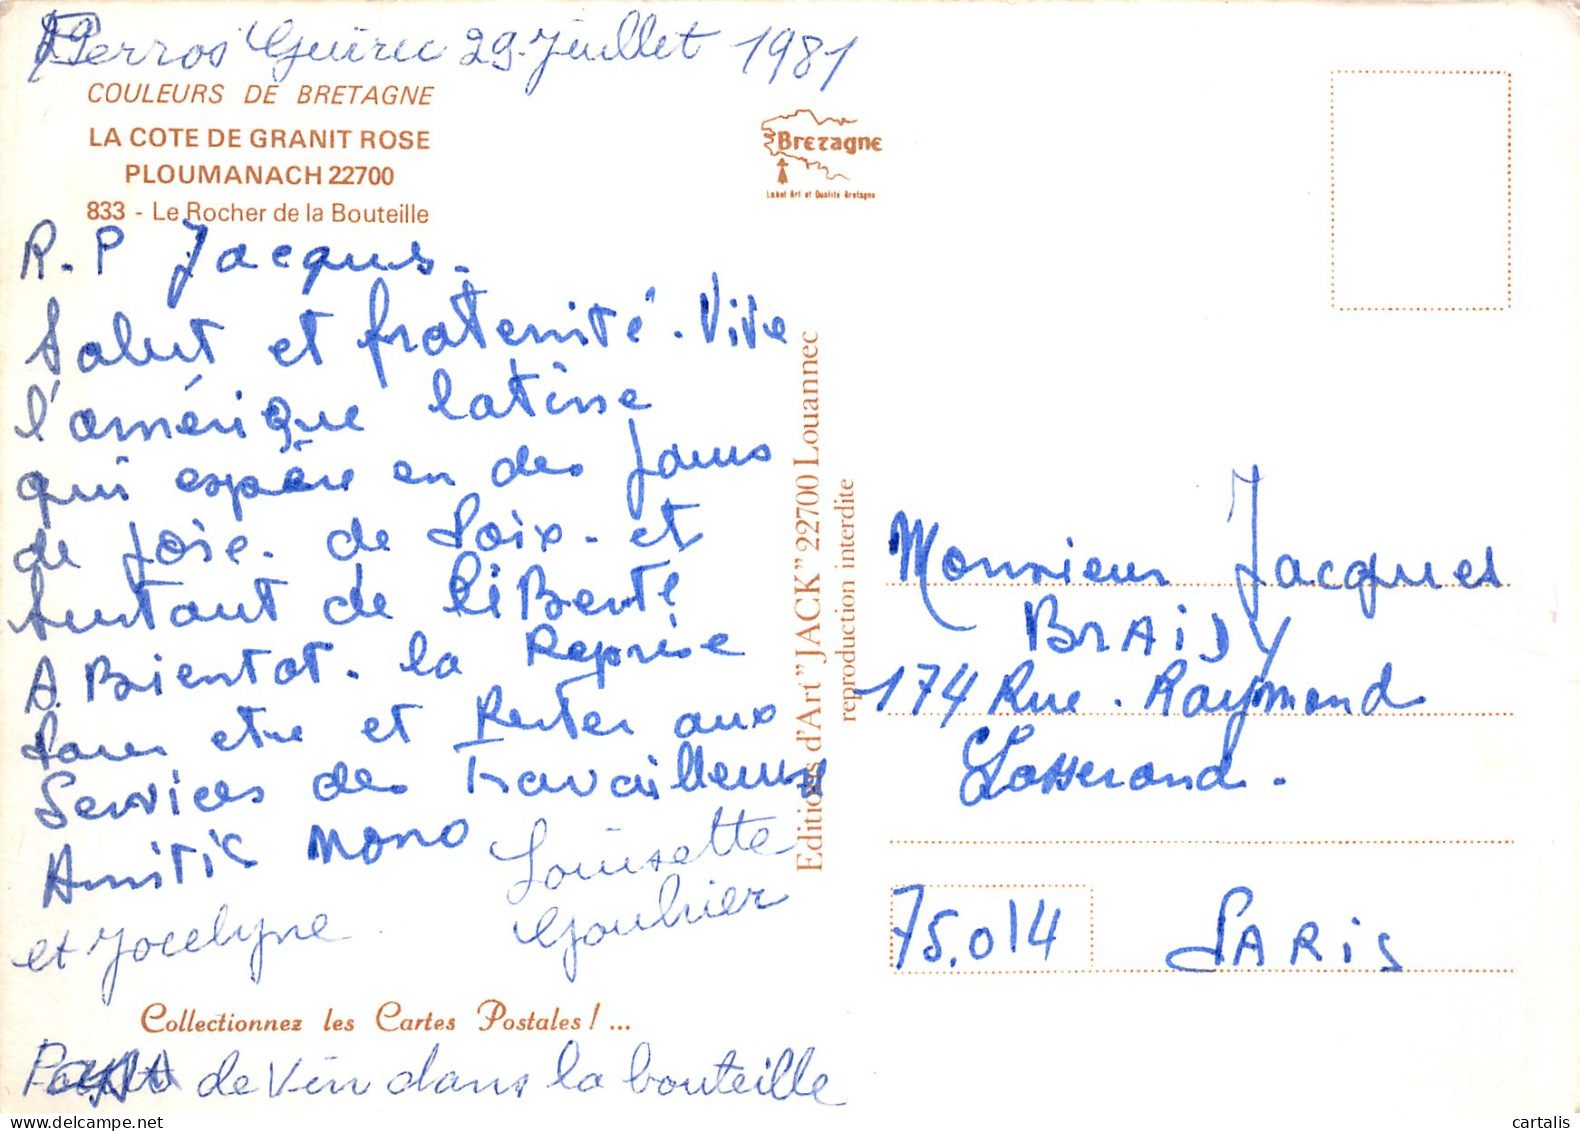 Perros Guirec 29 Juillet 1981
COULEURS DE BRETAGNE
LA COTE DE GRANIT ROSE
PLOUMANACH 22700
833 - Le Rocher de la Bouteille
Bretagne
Label Art et Qualité Bretagne
R.P Jacques.
Salut et fraternité. Vive
l'amérique latine
qui espère en des Jours
de joie. de Paix. et
surtout de liBerté
A Bientot. la Reprise
Pour etre et Rester aux
Services des Travailleurs
Amitié Nono
Louisette
Gouhier
et Jocelyne
Collectionnez les Cartes Postales ! ...
de Vin dans la bouteille
Editions d'Art "JACK" 22700 Louannec
reproduction interdite
Monsieur Jacques
BRAiDY
174 Rue. Raymond
Losserand.
75.014 PARiS
cartalis